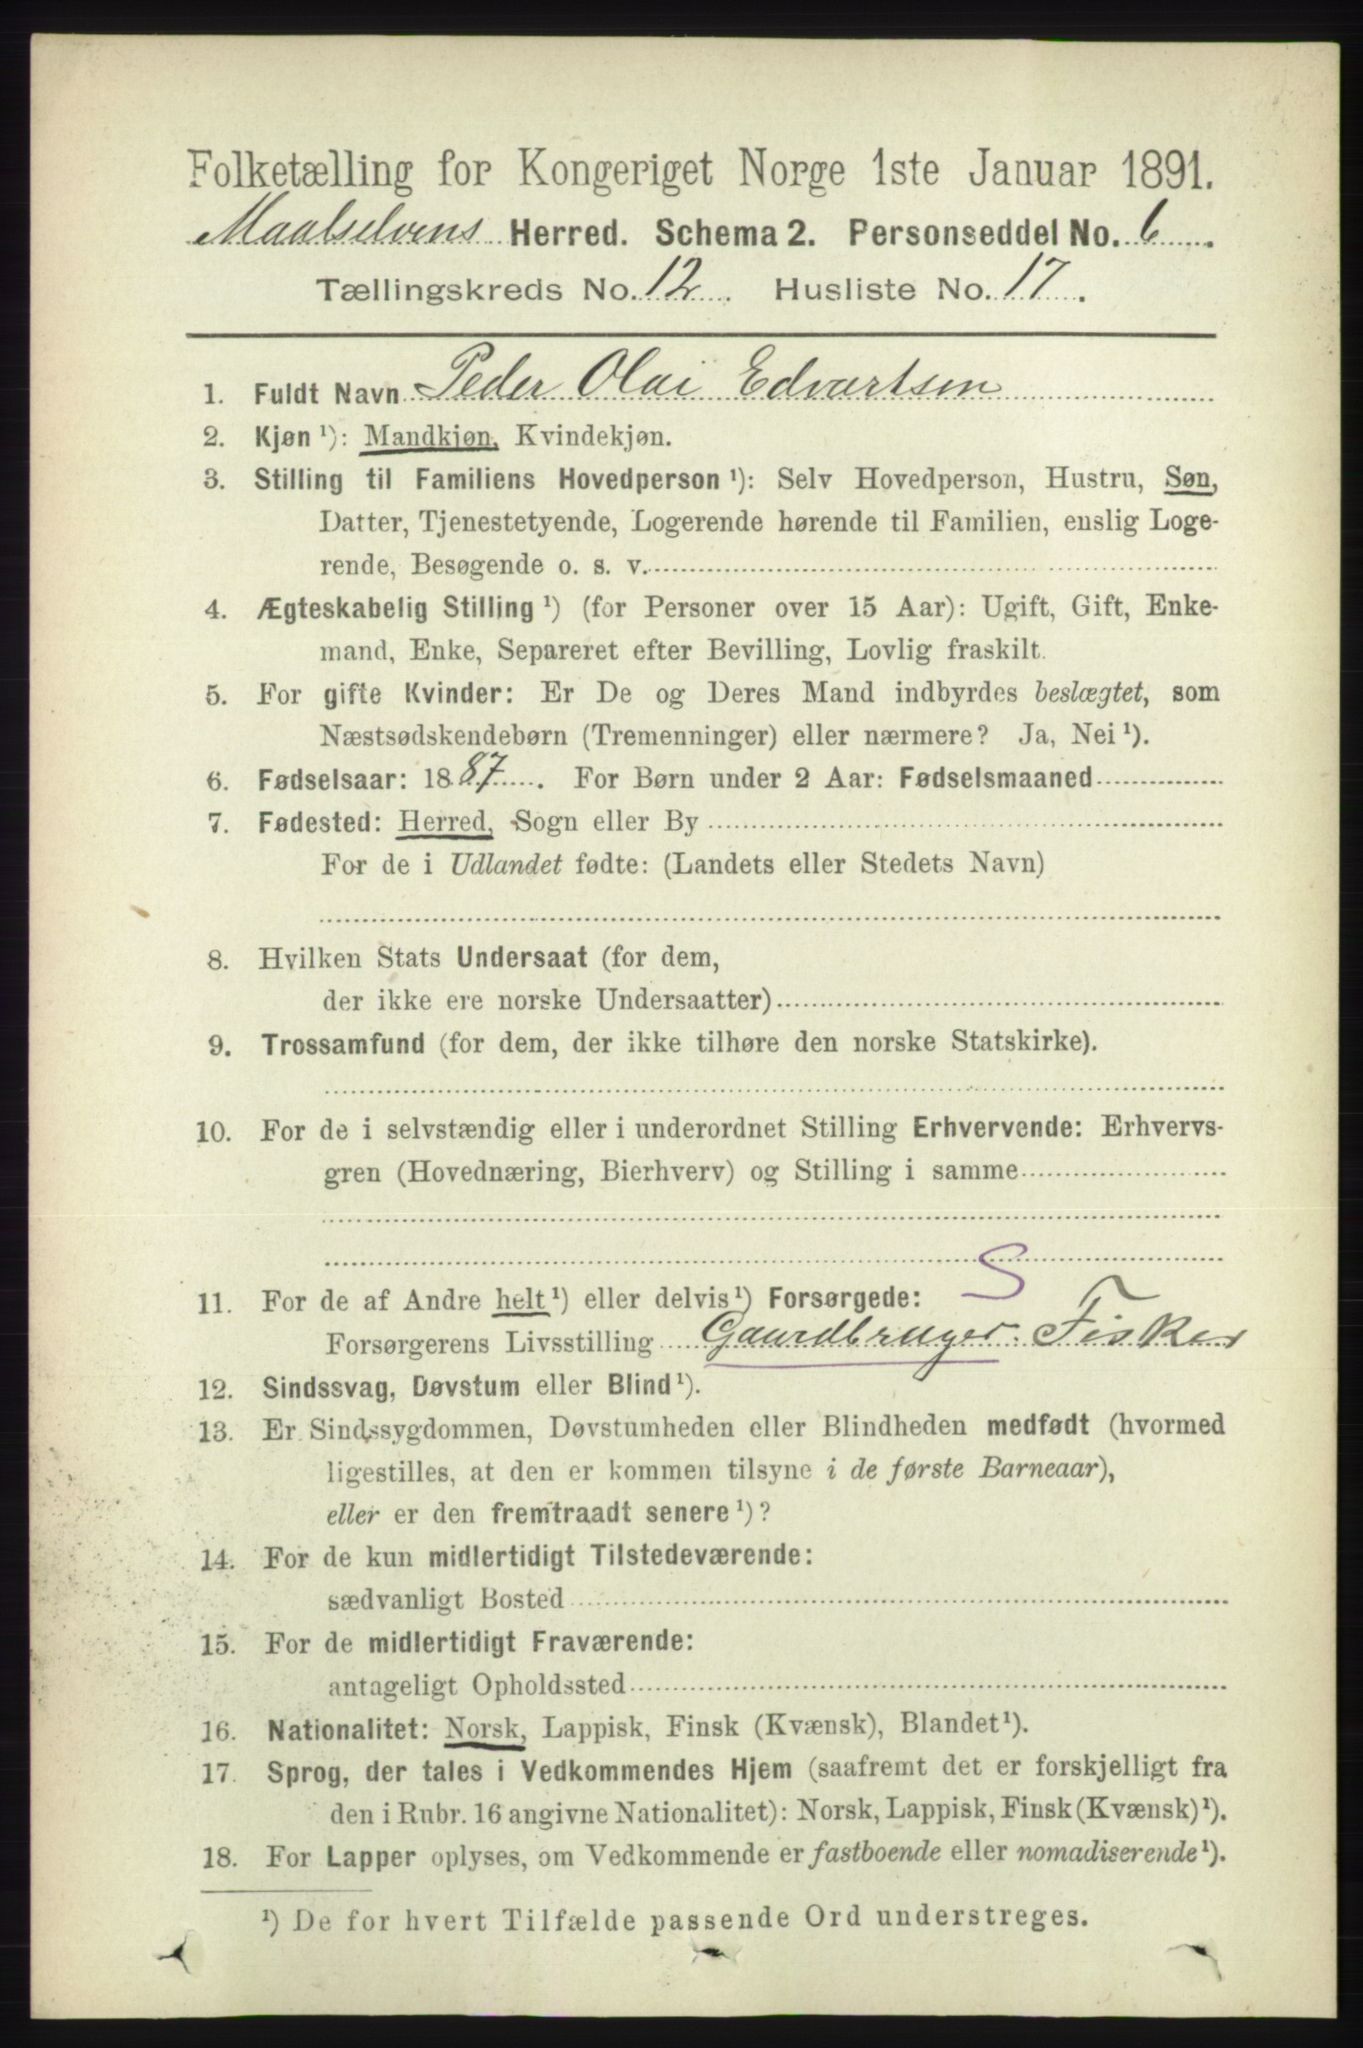 Folketælling for Kongeriget Norge 1ste Januar 1891.
Maalselvens Herred. Schema 2. Personseddel No. 6.
Tællingskreds No. 12. Husliste No. 17.
1. Fuldt Navn Peder Olai Edvartsen
2. Kjøn ¹): Mandkjøn, Kvindekjøn.
3. Stilling til Familiens Hovedperson ¹): Selv Hovedperson, Hustru, Søn,
Datter, Tjenestetyende, Logerende hørende til Familien, enslig Loge-
rende, Besøgende o. s. v.
4. Ægteskabelig Stilling ¹) (for Personer over 15 Aar): Ugift, Gift, Enke-
mand, Enke, Separeret efter Bevilling, Lovlig fraskilt.
5. For gifte Kvinder: Er De og Deres Mand indbyrdes beslægtet, som
Næstsødskendebørn (Tremenninger) eller nærmere? Ja, Nei ¹).
6. Fødselsaar: 1887. For Børn under 2 Aar: Fødselsmaaned
7. Fødested: Herred, Sogn eller By
For de i Udlandet fødte: (Landets eller Stedets Navn)
8. Hvilken Stats Undersaat (for dem,
der ikke ere norske Undersaatter)
9. Trossamfund (for dem, der ikke tilhøre den norske Statskirke).
10. For de i selvstændig eller i underordnet Stilling Erhvervende: Erhvervs-
gren (Hovednæring, Bierhverv) og Stilling i samme
S
11. For de af Andre helt ¹) eller delvis ¹) Forsørgede:
Forsørgerens Livsstilling Gaardbruger. Fisker
12. Sindssvag, Døvstum eller Blind ¹).
13. Er Sindssygdommen, Døvstumheden eller Blindheden medfødt (hvormed
ligestilles, at den er kommen tilsyne i de første Barneaar),
eller er den fremtraadt senere ¹)?
14. For de kun midlertidigt Tilstedeværende:
sædvanligt Bosted
15. For de midlertidigt Fraværende:
antageligt Opholdssted
16. Nationalitet: Norsk, Lappisk, Finsk (Kvænsk), Blandet ¹).
17. Sprog, der tales i Vedkommendes Hjem (saafremt det er forskjelligt fra
den i Rubr. 16 angivne Nationalitet): Norsk, Lappisk, Finsk (Kvænsk) ¹).
18. For Lapper oplyses, om Vedkommende er fastboende eller nomadiserende ¹).
¹) De for hvert Tilfælde passende Ord understreges.